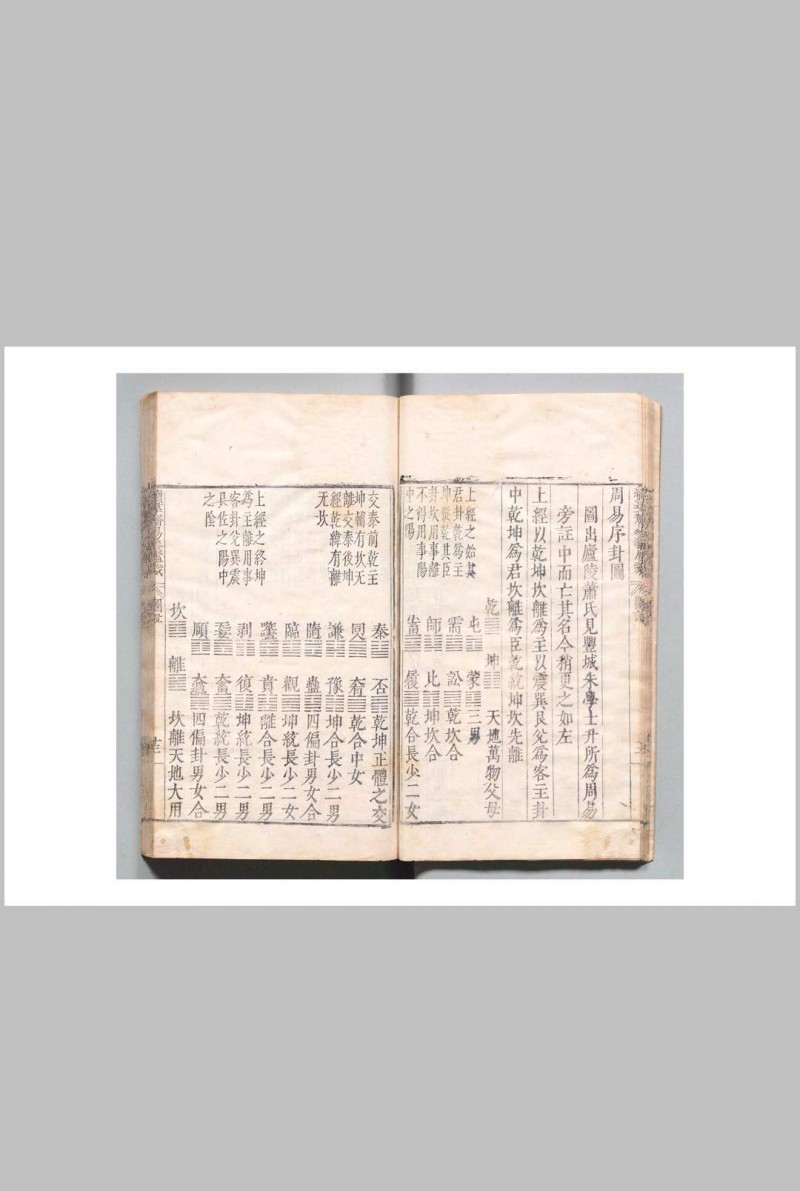 周易序卦圖
圖出廬陵蕭氏見豐城朱學士升所爲周易
旁註中而亡其名今稍更之如左
上經以乾坤坎離爲主以震巽艮兌爲客主卦
中乾坤爲君坎離爲臣乾乾坤坎先離
乾 坤 天地萬物父母
上經之始其
君卦乾爲主
坤從乾其臣
卦坎用事離
不得用事陽
中之陽
屯 蒙 三男
需 訟 乾坎合
師 比 坤坎合
畜 履 乾合長少二女
交泰前乾主
坤輔有坎无
離交泰後坤
經乾緯有離
无坎
泰 否 乾坤正體之交
同 乾合中女
謙 豫 坤合長少二男
隨 蠱 四偏卦男女合
臨 觀 坤統長少二女
噬 賁 離合長少二男
剥 復 坤統長少二男
奮 乾統長少二男
頤 四偏卦男女合
上經之終坤
爲主離用事
客卦兌巽震
艮佐之陽中
之陰
坎 離 坎離天地大用